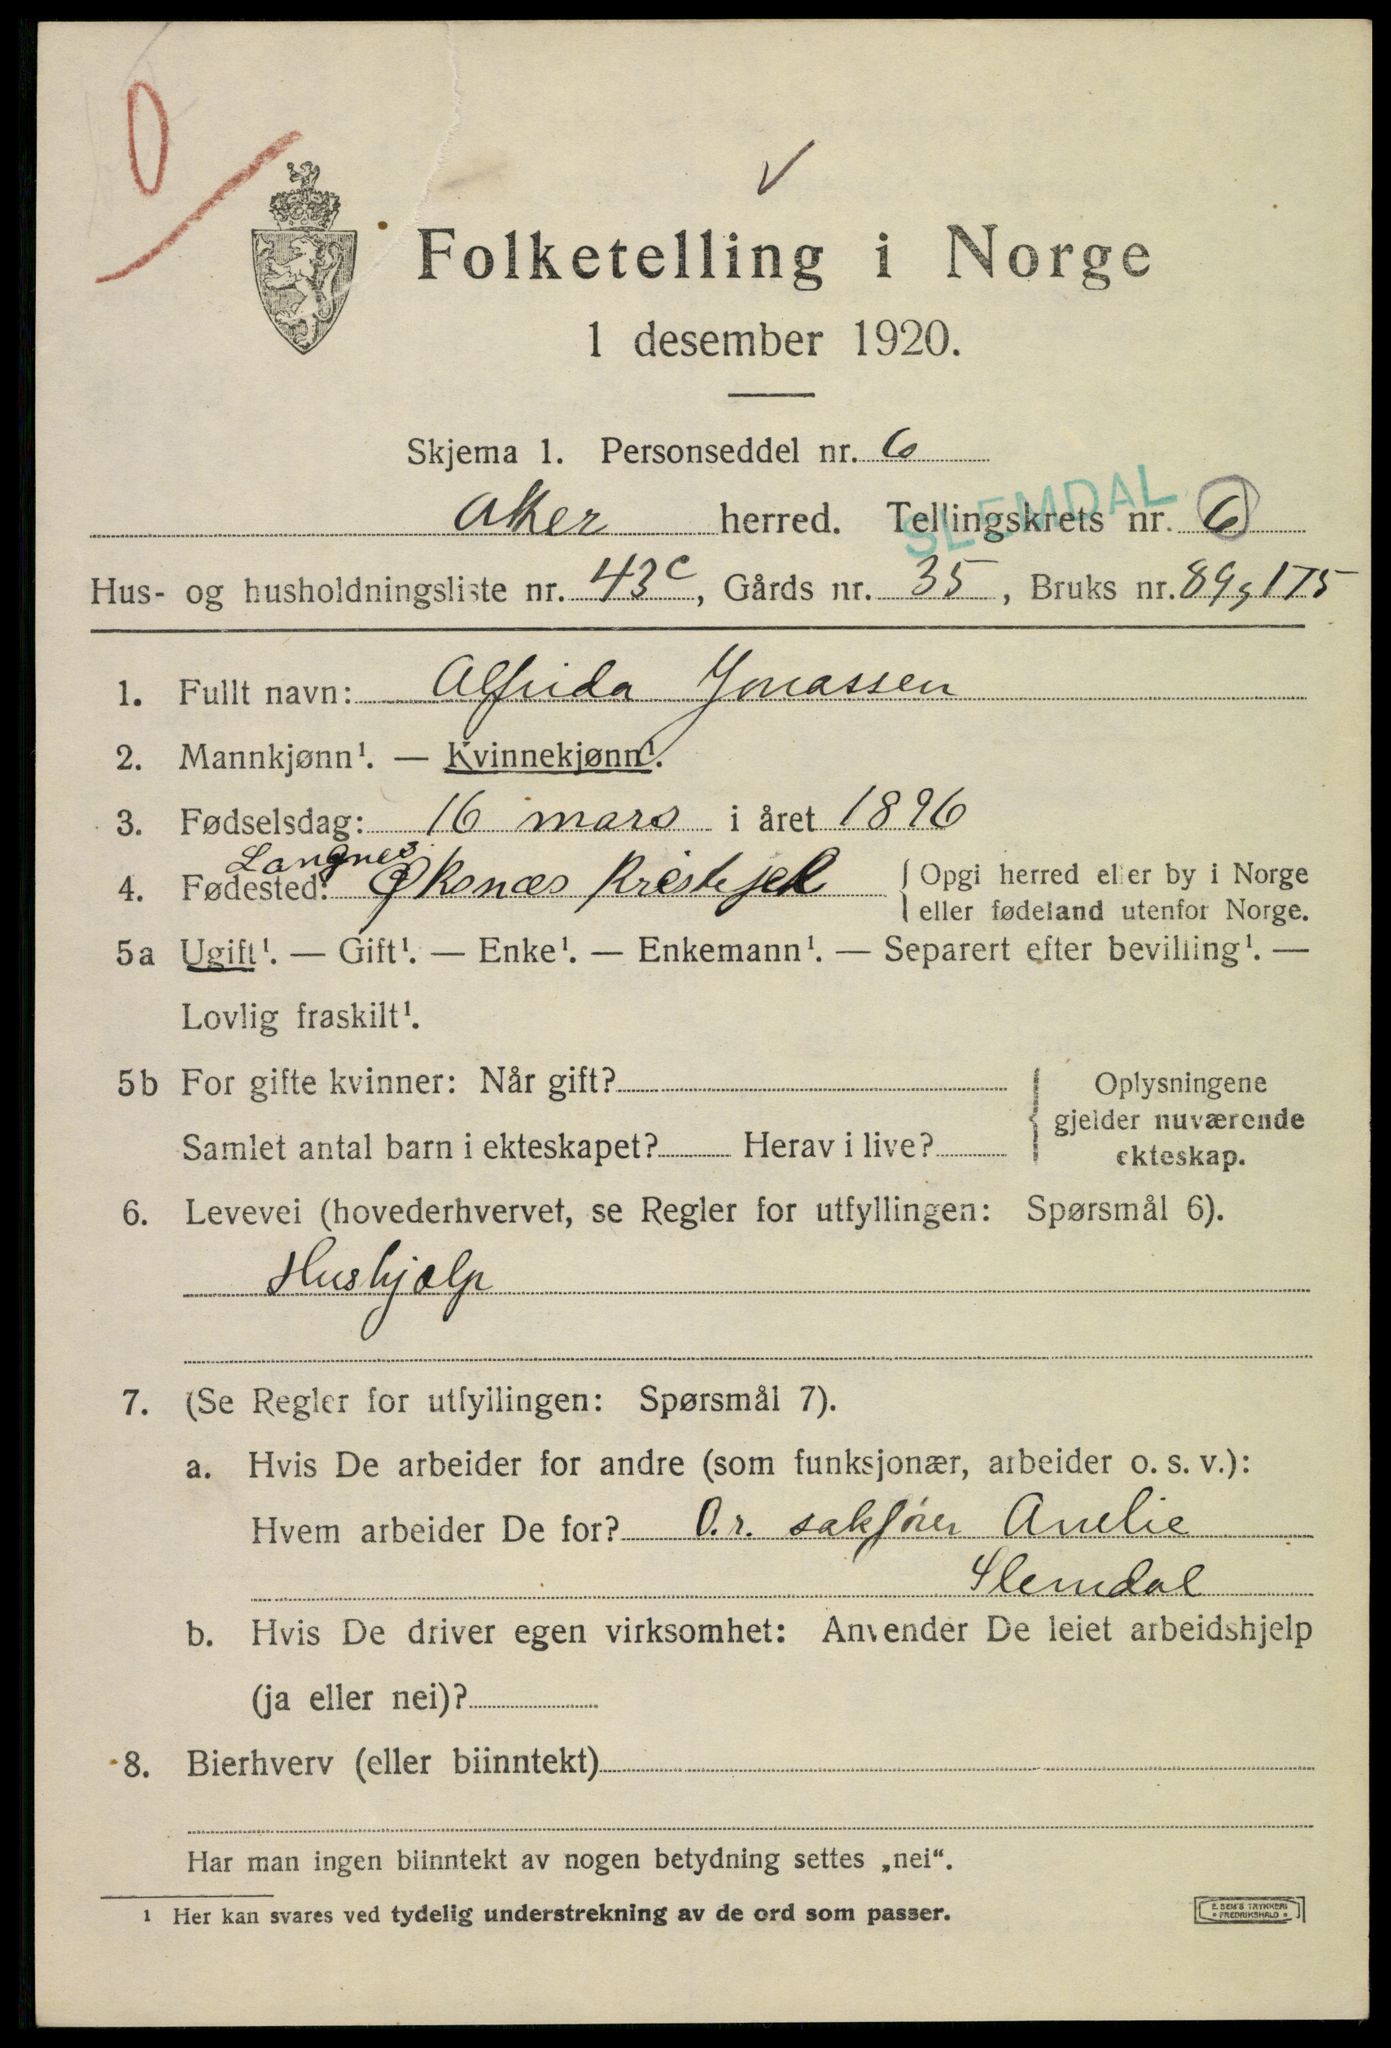 0
Folketelling i Norge
1 desember 1920.
Skjema 1. Personseddel nr. 6
SLEMDAL
Aker herred. Tellingskrets nr. 6
Hus- og husholdningsliste nr. 43c, Gårds nr. 35, Bruks nr. 89, 175
1. Fullt navn: Alfrida Jonassen
2. Mannkjønn¹. — Kvinnekjønn¹.
3. Fødselsdag: 16 mars i året 1896
Langnes
4. Fødested: Øksnæs { Opgi herred eller by i Norge
eller fødeland utenfor Norge.
5a Ugift¹. — Gift¹. — Enke¹. — Enkemann¹. — Separert efter bevilling¹. —
Lovlig fraskilt¹.
5b For gifte kvinner: Når gift? { Oplysningene
gjelder nuværende
Samlet antal barn i ekteskapet? Herav i live? ekteskap.
6. Levevei (hovederhvervet, se Regler for utfyllingen: Spørsmål 6).
Hushjælp
7. (Se Regler for utfyllingen: Spørsmål 7).
a. Hvis De arbeider for andre (som funksjonær, arbeider o. s. v.):
Hvem arbeider De for? O.r. sakfører
Slemdal
b. Hvis De driver egen virksomhet: Anvender De leiet arbeidshjelp
(ja eller nei)?
8. Bierhverv (eller biinntekt)
Har man ingen biinntekt av nogen betydning settes „nei“.
¹ Her kan svares ved tydelig understrekning av de ord som passer.
E. SEM'S TRYKKERI
• FREDRIKSHALD •